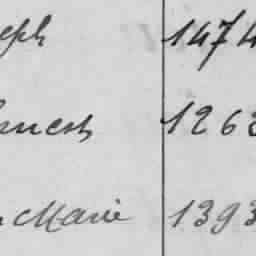 eph 1474
rnest 1262
Marie 1393